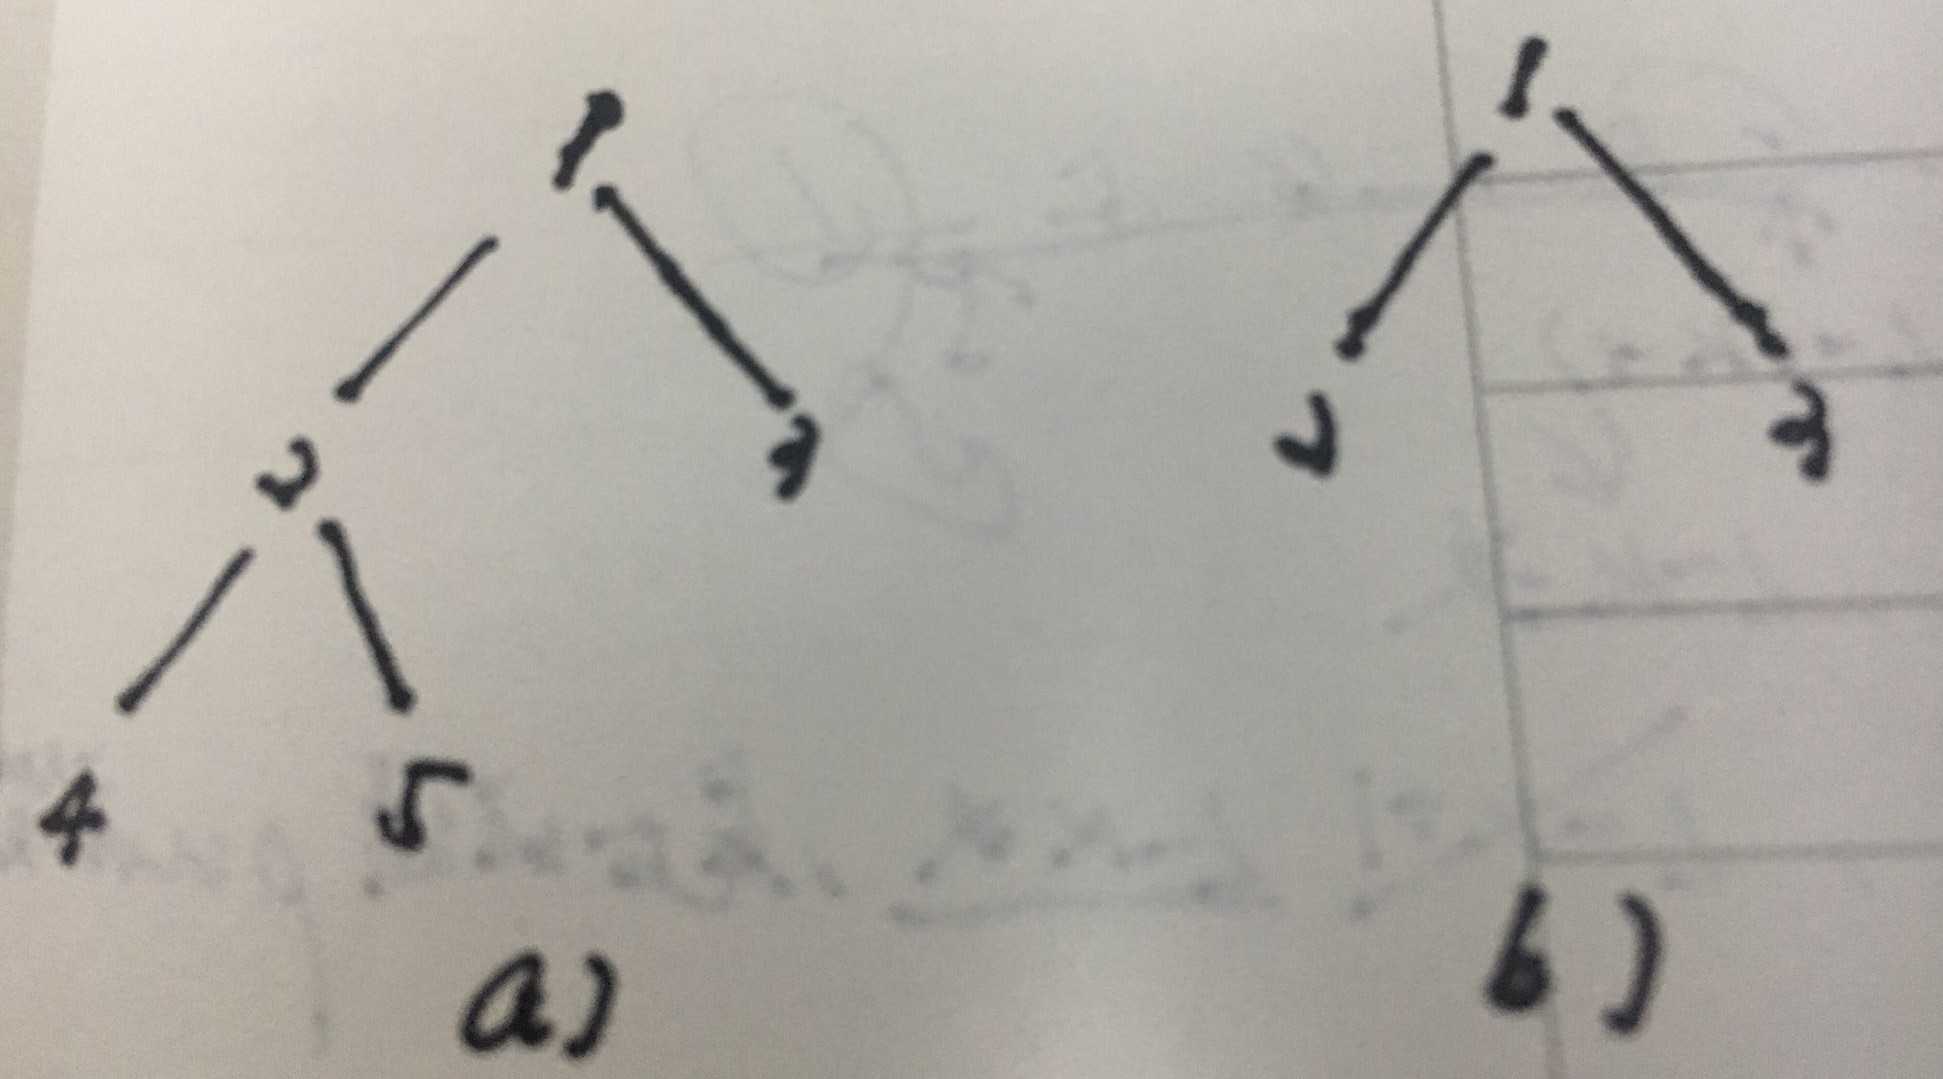 1
2 3
4 5
a)
1
2 3
b)